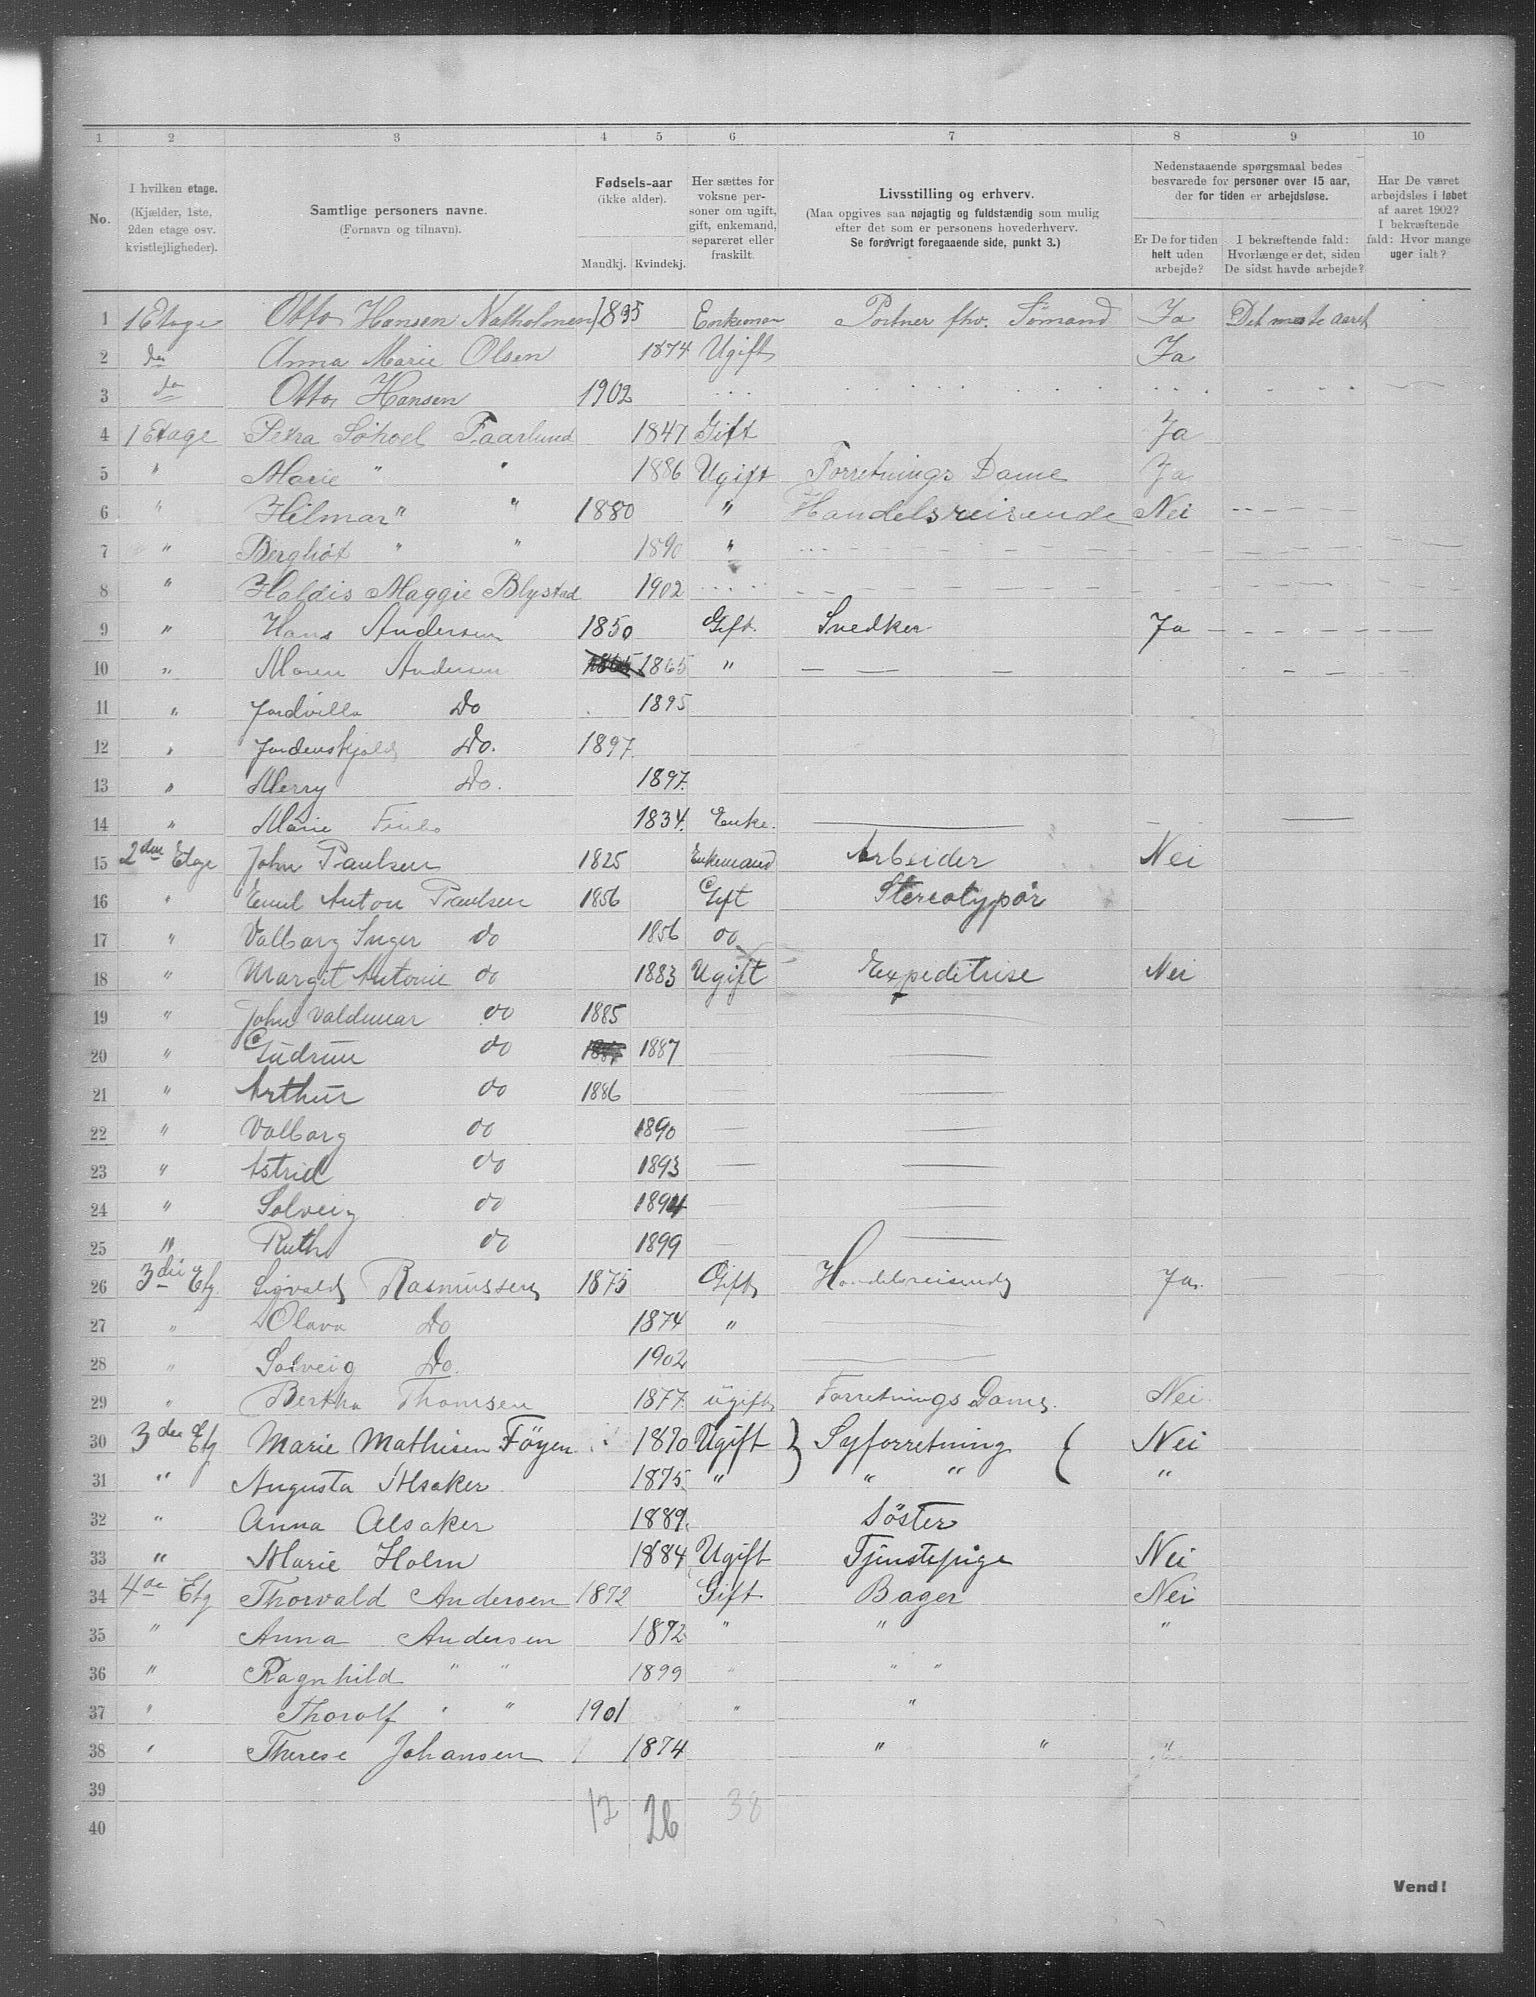 1 2 3 4 5 6 7 8 9 10
No.
I hvilken etage.
(Kjælder, 1ste,
2den etage osv.
kvistlejligheder).
Samtlige personers navne.
(Fornavn og tilnavn).
Fødsels-aar
(ikke alder).
Mandkj. Kvindekj.
Her sættes for
voksne per-
soner om ugift,
gift, enkemand,
separeret eller
fraskilt.
Livsstilling og erhverv.
(Maa opgives saa nøjagtig og fuldstændig som mulig
efter det som er personens hovederhverv.
Se forøvrigt foregaaende side, punkt 3.)
Nedenstaaende spørgsmaal bedes
besvarede for personer over 15 aar,
der for tiden er arbejdsløse.
Er De for tiden
helt uden
arbejde?
I bekræftende fald:
Hvorlænge er det, siden
De sidst havde arbejde?
Har De været
arbejdsløs i løbet
af aaret 1902?
I bekræftende
fald: Hvor mange
uger ialt?
1 1 Etage Otto Hansen Natholmen 1835 Enkeman Portner fhv. Sömand Ja Det meste aaret
2 do Anna Marie Olsen 1874 Ugift Ja
3 do Otto Hansen 1902
4 1 Etage Petra Söhoel Faarlund 1847 Gift Ja
5 " Marie " " 1886 Ugift Forretnings Dame Ja
6 " Hilmar " " 1880 " Handelsreisende Nei
7 " Bergliot " " 1890 "
8 " Haldis Maggie Blystad 1902
9 " Hans Andersen 1850 Gift. Snedker Ja
10 " Maren Andersen 1865 1865 "
11 " Jordvilla Do 1895
12 " Jordenskjold Do. 1897.
13 " Merry Do. 1897.
14 " Marie 1834. Enke.
15 2den Etage John Paulsen 1825 Enkemand Arbeider Nei
16 " Emil Anton Paulsen 1856 Gift Stereotypör
17 " Valborg Inger do 1856 do
18 " Margit Antonie do 1883 Ugift Expeditrise Nei
19 " John Valdemar do 1885
20 " Gudrun do 1887 1887
21 " Arthur do 1886
22 " Valborg do 1890
23 " Astrid do 1893
24 " Solveig do 1894
25 " Ruth do 1899
26 3die Etg. Sigvald Rasmussen 1875 Gift Handelsreisende Ja.
27 " Olava Do 1874 "
28 " Solveig Do. 1902
29 " Bertha Thomsen 1877. ugift Forretnings Dame. Nei
30 3die Etg Marie Mathisen Föyen 1870 Ugift } Syforretning { Nei
31 " Augusta Alsaker 1875 " " " "
32 " Anna Alsaker 1889. Söster
33 " Marie Holm 1884 Ugift Tjenstepige Nei
34 4de Etg Thorvald Andersen 1872 Gift Bager Nei
35 " Anna Andersen 1872 " " "
36 " Ragnhild " " 1899 " " "
37 " Thorolf " " 1901 " "
38 " Therese Johansen 1874 " " "
39
40
12 26 38
Vend!